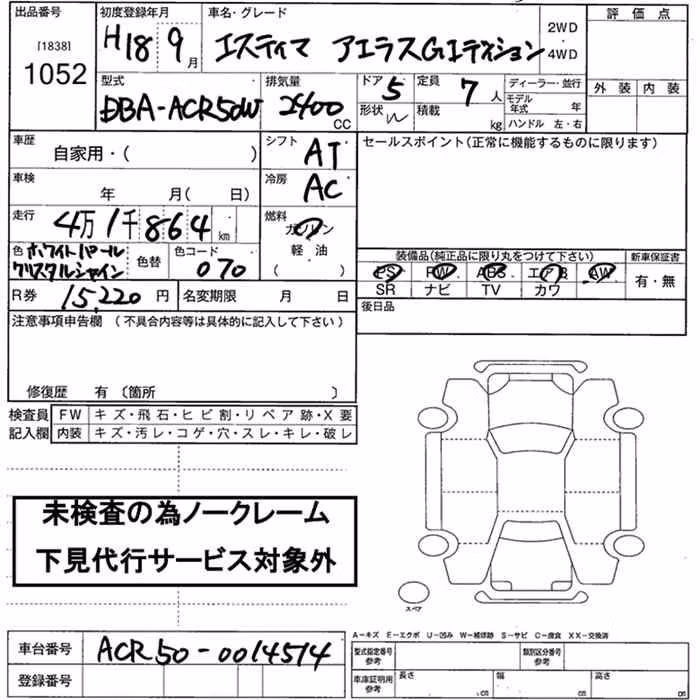 出品番号 初度登録年月 車名・グレード 評価点
[1838]
1052 H18 9月 エスティマ アエラスGエディション 2WD・4WD
外装 内装
型式 排気量 ドア 5 定員 7人 ディーラー・並行
DBA-ACR50W 2400cc 形状 W 積載 kg モデル年式 年
ハンドル 左・右
車歴 シフト セールスポイント(正常に機能するものに限ります)
自家用・( ) AT
車検 冷房
年 月( 日) AC
走行 燃料
4万1千864km ガソリン
軽油
( )
色 ホワイトパール 色替 色コード 装備品(純正品に限り丸をつけて下さい) 新車保証書
クリスタルシャイン 070 PS PW ABS エアB AW 有・無
SR ナビ TV カワ
R券 15,220円 名変期限 月 日 後日品
注意事項申告欄(不具合内容等は具体的に記入して下さい)
修復歴 有〔箇所 〕
検査員 FW キズ・飛石・ヒビ割・リペア跡・X要
記入欄 内装 キズ・汚レ・コゲ・穴・スレ・キレ・破レ
未検査の為ノークレーム
下見代行サービス対象外
スペア
A-キズ E-エクボ U-凹み W-補修跡 S-サビ C-腐食 XX-交換済
車台番号 ACR50-0014514 型式指定番号 参考 類別区分番号 参考
登録番号 車庫証明用 参考 長さ cm 幅 cm 高さ cm